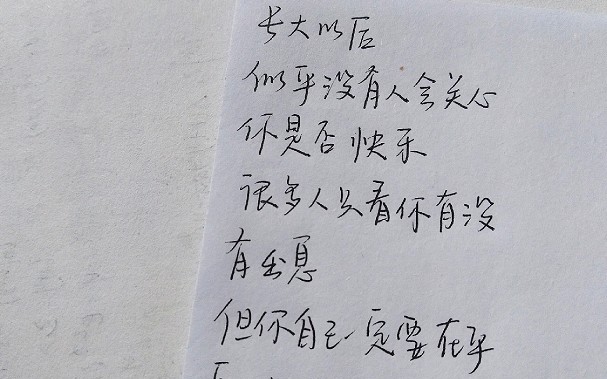 长大以后
似乎没有人会关心
你是否快乐
很多人只看你有没
有出息
但你自己一定要在乎